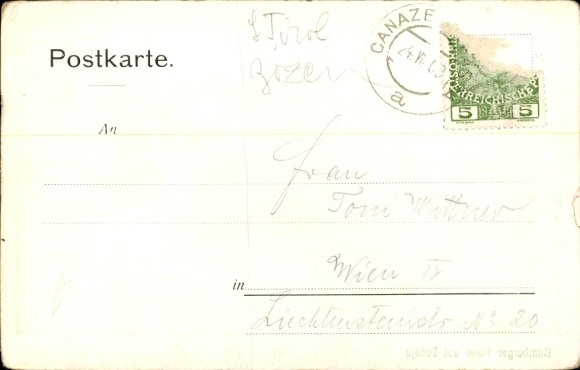 S Tirol
Bozen
Postkarte.
CANAZEI
24.VI.09
a
5 5
An
Frau
Toni Wittner
in Wien IX
Liechtensteinstr No 20
Bamberger Haus auf Fedaja